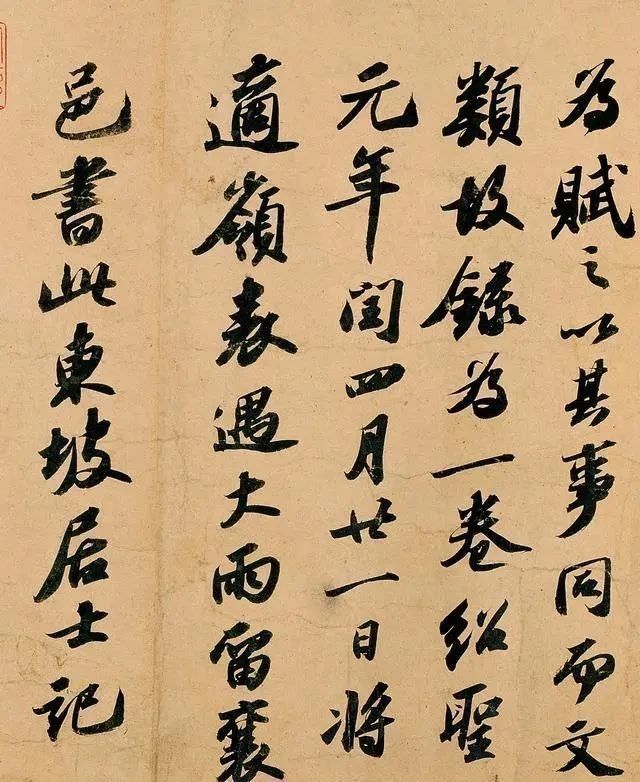 為賦之以其事同而文
類故錄為一卷紹聖
元年閏四月廿一日將
適嶺表遇大雨留襄
邑書此東坡居士記